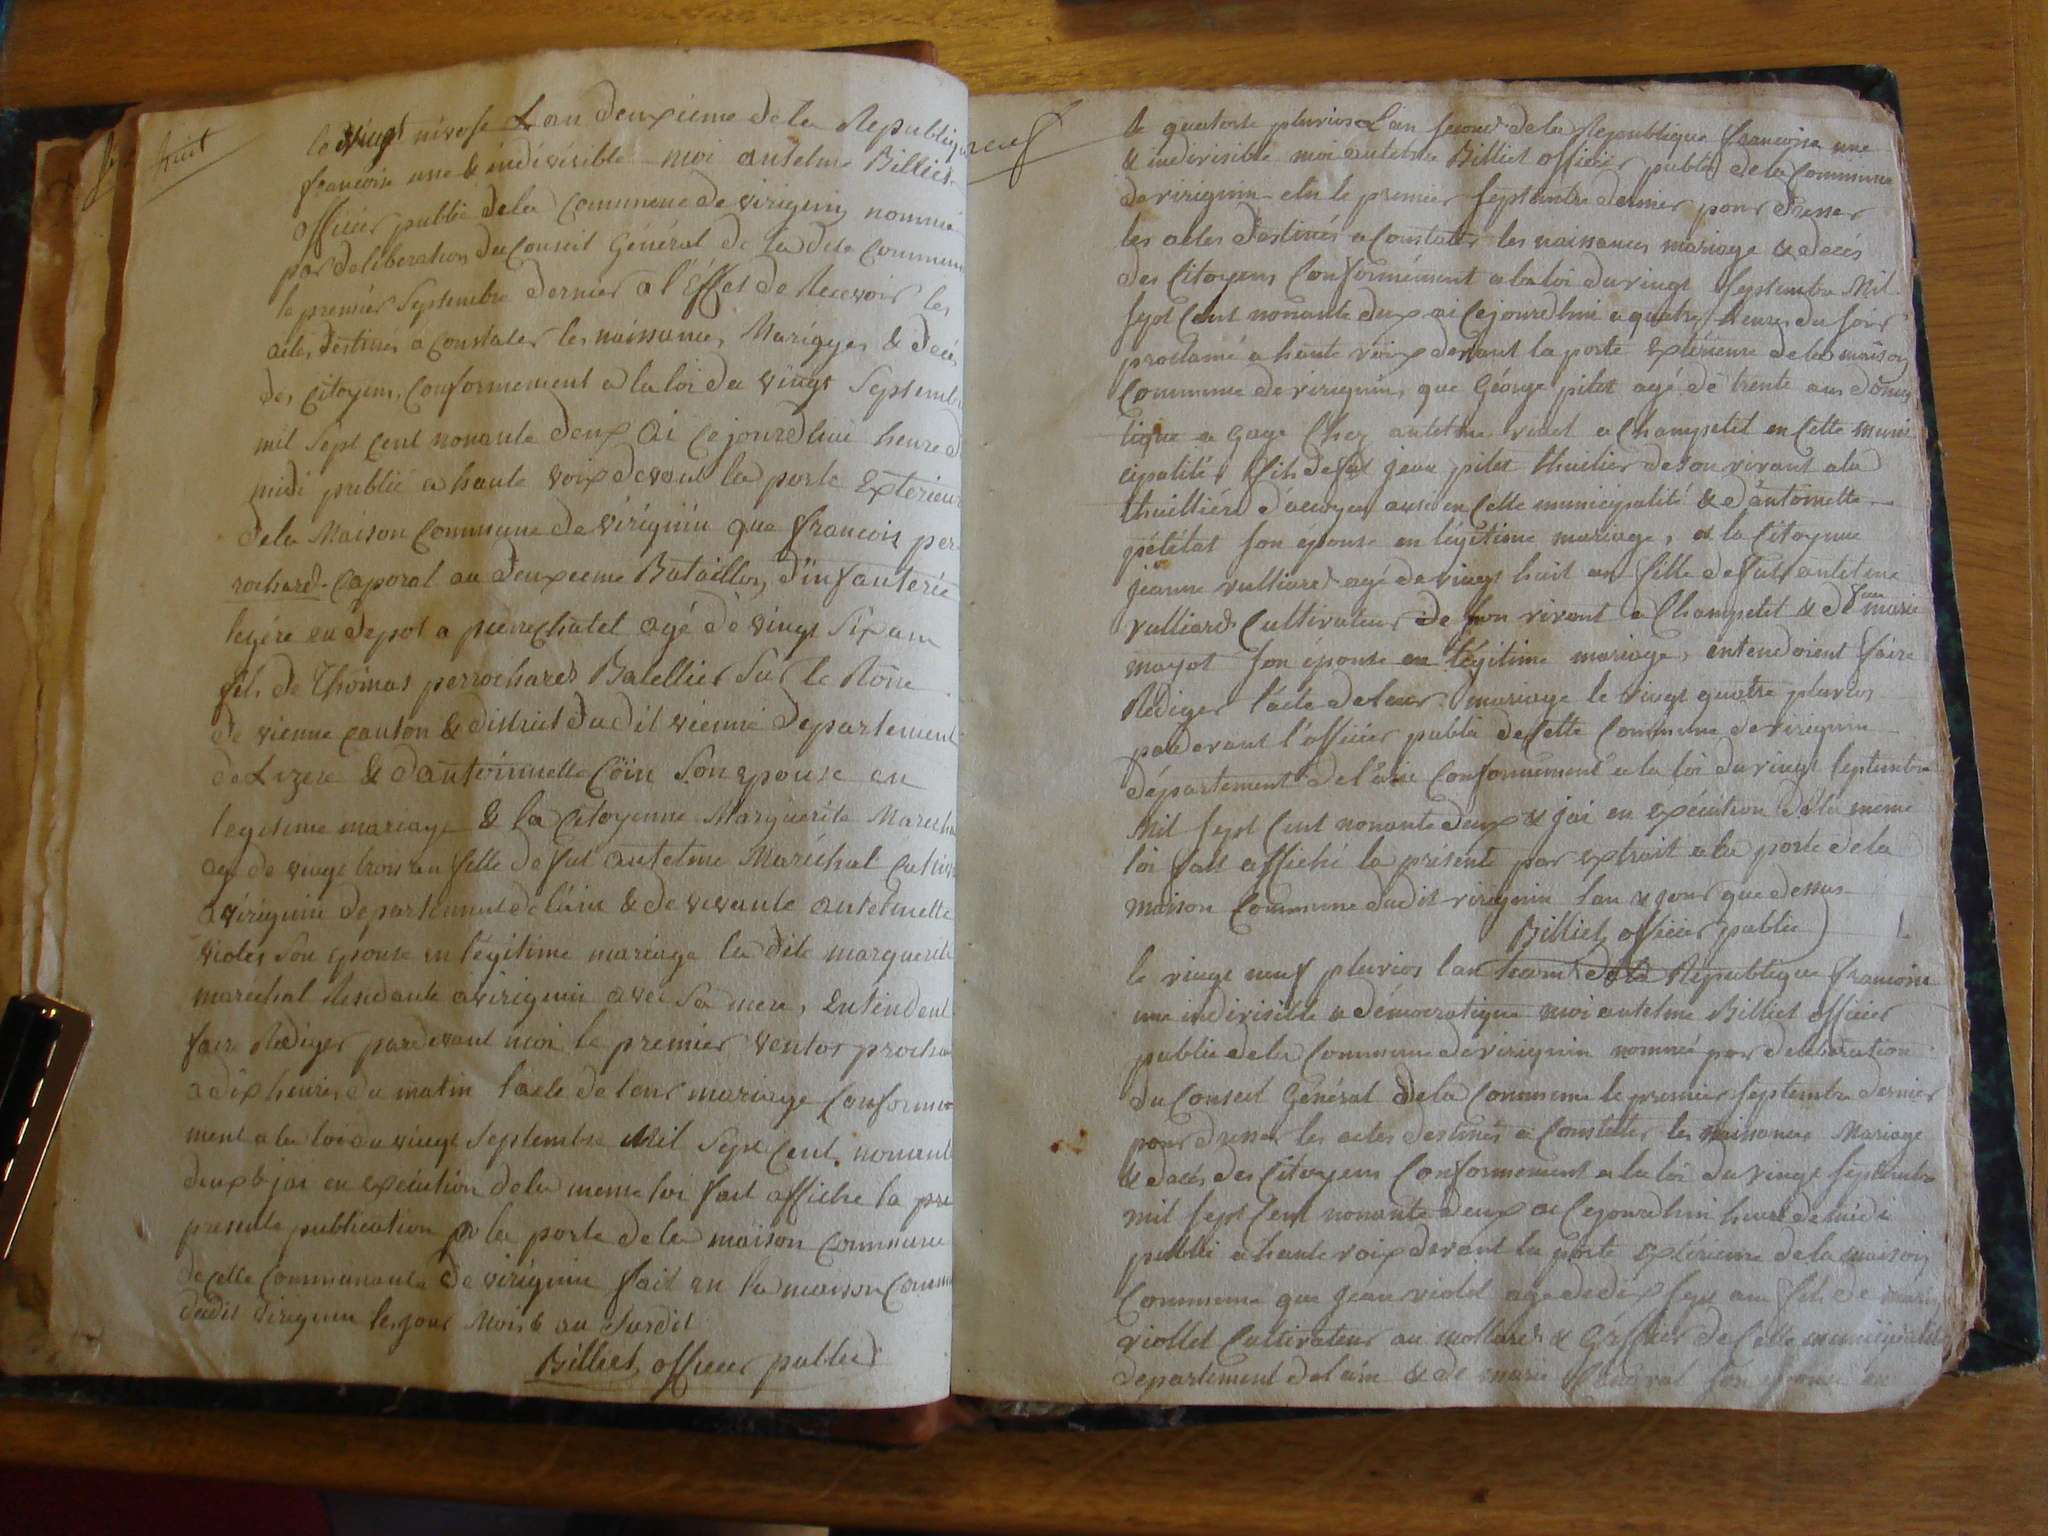 huit
le vingt nivose Lan deuxieme de la Republique
francoise une & indivisible moi antelme Billiet
officier public de la Commune de virignin nommé
par deliberation du Conseil Général de la dite Commune
le premier Septembre dernier a l'Effet de Recevoir les
actes destinés a Constater les naissances, Mariages & decés
des Citoyens, Conformement a la loi du vingt Septembre
mil Sept Cent nonante deux ai Cejourdhui heure de
midi publié a haute voix devant la porte Exterieure
de la Maison Commune de virignin que francois per
rochard Caporal au deuxieme Bataillon d'infanterie
legére en depot a pierrechatel agé de vingt Six ans
fils de Thomas perrochard Batellier Sur le Rône
de vienne canton & district du dit vienne Departement
de Lizere & d'antoinnette Cöin Son epouse en
legitime mariage & la Citoyenne Marguerite Marechal
agé de vingt trois an fille de fut antelme Maréchal
a virignin departement de l'ain & de vivante antelmette
violet Son epouse en légitime mariage la dite marguerite
marechal Residante a virignin avec Sa mere, Entendent
faire Rediger pardevant moi le premier ventos prochain
a dix heures du matin lacte de leur mariage Conforme
ment a la loi du vingt Septembre Mil Sept Cent nonante
deux & jai en execution de la meme loi fait affiche la pre
presente publication a la porte de la maison Commune
de Cette Communauté de virignin fait en la maison Commune
dudit virignin les jour Mois & an Susdit
Billiet officier public
neuf
le quatorse pluvios Lan second de la Republique francoise une
& indivisible moi antelme Billiet officier public de la Commune
de virignin elu le premier septembre dernier pour Dresser
les actes destinés a Constater les naissances mariage & decés
des Citoyens Conformément a la loi du vingt septembre Mil
sept Cent nonante deux ai Cejourdhui a quatre heures du soir
proclamé a haute voix devant la porte Extérieure de la maison
Commune de virignin, que Géorge pitet agé de trente ans domes
tique a gage Chez antelme violet a Champetel en Cette munic
cipalité, fils de fut jean pitet thuilier de son vivant a la
thuilliére d'acoyeu aussi en Cette municipalité & d'antoinette
son épouse en légitime mariage, & la Citoyenne
jeanne vulliard agé de vingt huit an fille de fut antelme
vulliard Cultivateur de son vivant a Champetel & de marie
mayot son épouse en légitime mariage, entendoient faire
Rédiger l'acte de leur mariage le vingt quatre pluvios
pardevant l'officier public de Cette Commune de virignin
département de l'ain Conformement a la loi du vingt septembre
Mil sept Cent nonante deux & jai en exécution de la meme
loi fait affiché la présente par extrait a la porte de la
maison Commune dudit virignin l'an & jour que dessus
Billiet officier public
le vingt neuf pluvios lan second de la République francoise
une indivisible & démocratique moi antelme Billiet officier
public de la Commune de virignin nommé par deliberation
du Conseil Général de la Commune le premier septembre dernier
pour dresser les actes destinés a Constater les naissance Mariage
& decés des Citoyens Conformement a la loi du vingt septembre
mil sept Cent nonante deux ai Cejourdhui heure de midi
publié a haute voix devant la porte extérieure de la maison
Commune que jean violet age de dix sept ans fils de
viollet Cultivateur au mollard & Gréffier de Cette municipalité
departement de lain & de marie son epouse en